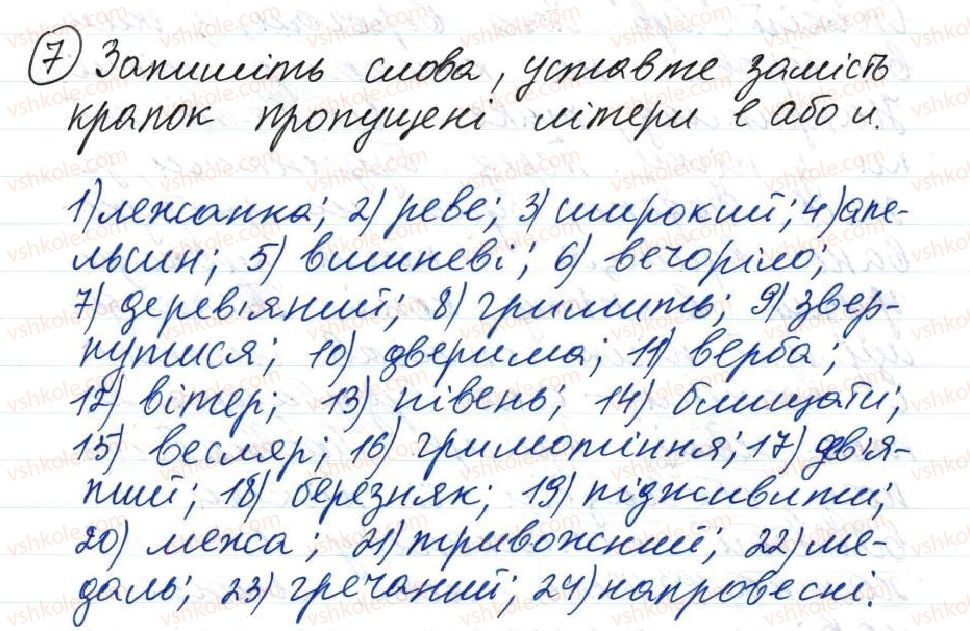 7. Запишіть слова, уставте замість
крапок пропущені літери е або и.
1) лежанка; 2) реве; 3) широкий; 4) апе-
льсин; 5) вишневі; 6) вечоріло;
7) дерев'яний; 8) гримить; 9) звер-
нутися; 10) дверима; 11) верба;
12) вітер; 13) півень; 14) блищати;
15) весляр; 16) гримотіння; 17) дев'я-
тий; 18) березняк; 19) підживити;
20) межа; 21) тривожний, 22) ме-
даль; 23) гречаний; 24) напровесні.